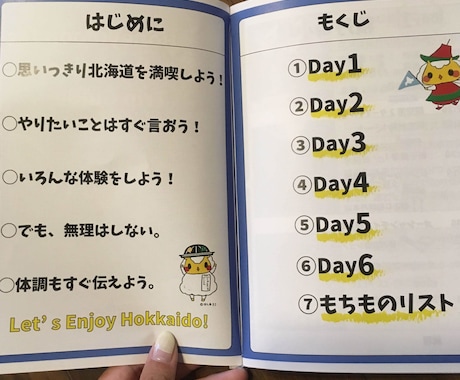 はじめに
○思いっきり北海道を満喫しよう!
○やりたいことはすぐ言おう!
○いろんな体験をしよう!
○でも、無理はしない。
○体調もすぐ伝えよう。
Let's Enjoy Hokkaido!
もくじ
①Day1
②Day2
③Day3
④Day4
⑤Day5
⑥Day6
⑦もちものリスト